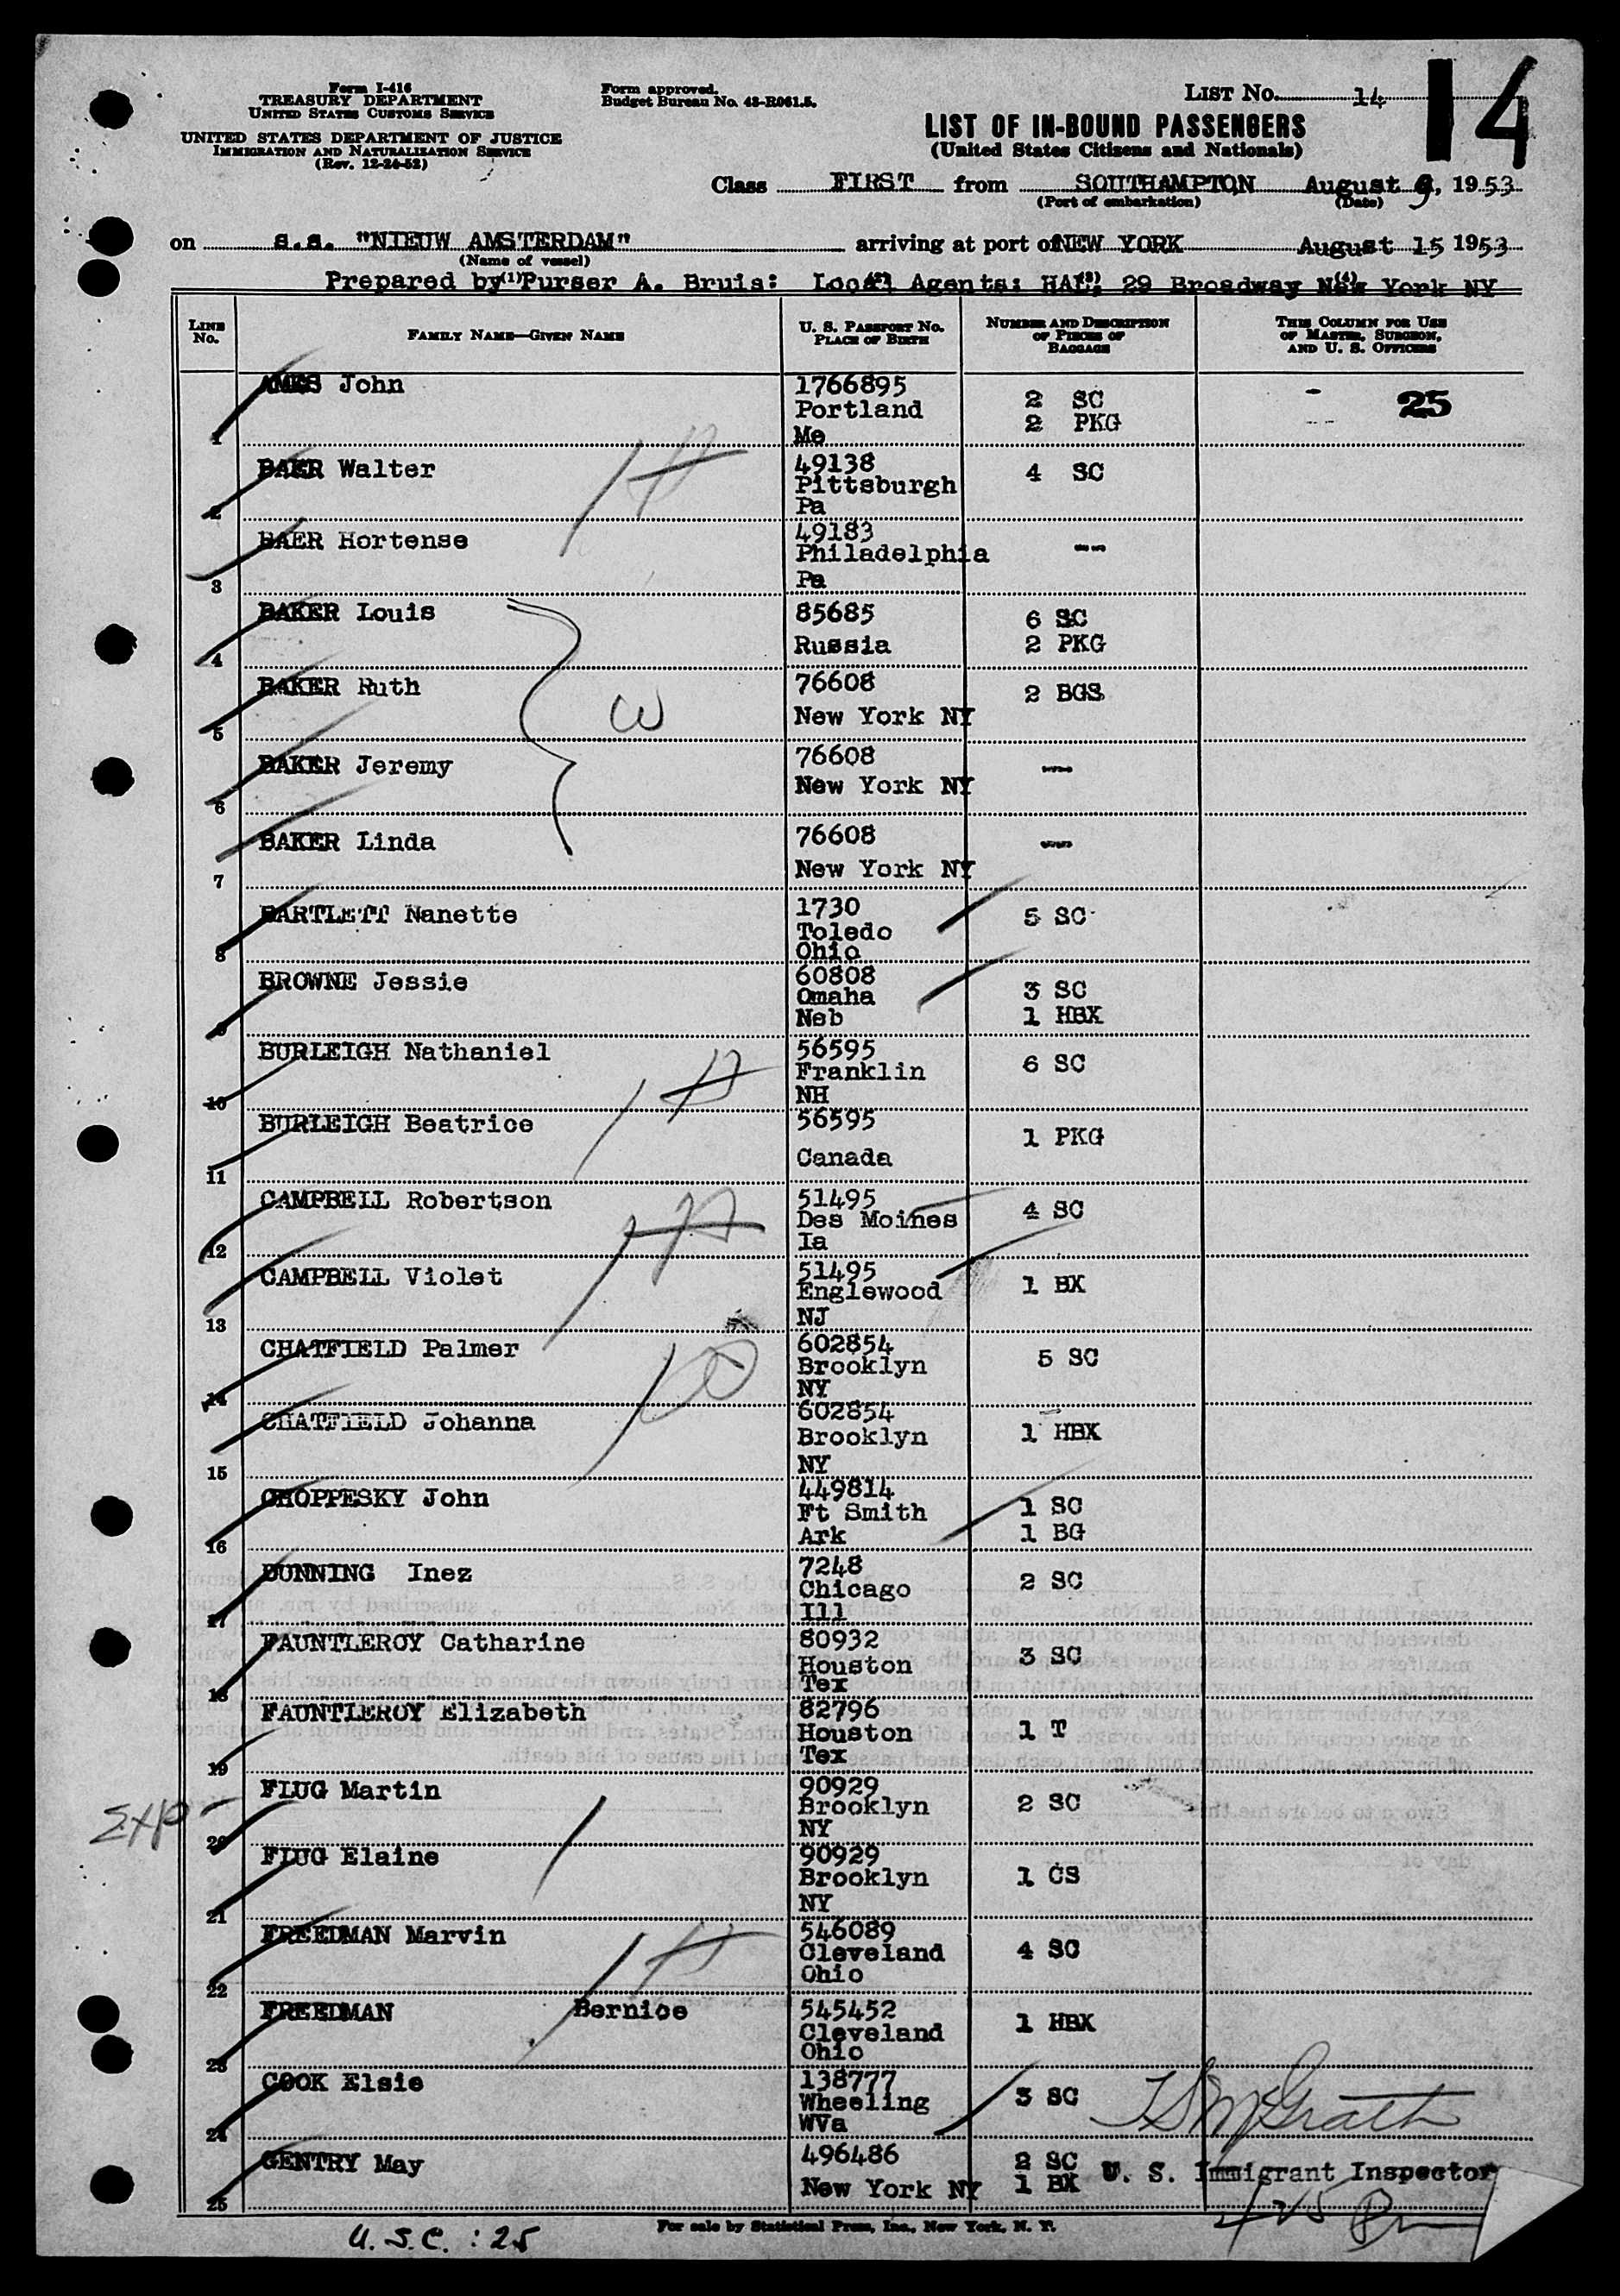 Form I-416
TREASURY DEPARTMENT
UNITED STATES CUSTOMS SERVICE
UNITED STATES DEPARTMENT OF JUSTICE
IMMIGRATION AND NATURALIZATION SERVICE
(Rev. 12-24-52)
Form approved.
Budget Bureau No. 43-R061.5.
LIST No. 14
14
LIST OF IN-BOUND PASSENGERS
(United States Citizens and Nationals)
Class FIRST from SOUTHAMPTON August 9, 1953
(Port of embarkation) (Date)
on s.s. "NIEUW AMSTERDAM" arriving at port of NEW YORK August 15 1953
(Name of vessel)
Prepared by Purser A. Bruis: Local Agents: HAL, 29 Broadway New York NY
(1) (2) (3) (4)
LINE No. FAMILY NAME—GIVEN NAME U. S. PASSPORT No. PLACE OF BIRTH NUMBER AND DESCRIPTION OF PIECES OF BAGGAGE THIS COLUMN FOR USE OF MASTER, SURGEON, AND U. S. OFFICERS
1 AMES John 1766895 Portland Me 2 SC 2 PKG - 25
2 BAER Walter 49138 Pittsburgh Pa 4 SC
3 BAER Hortense 49183 Philadelphia Pa --
4 BAKER Louis 85685 Russia 6 SC 2 PKG
5 BAKER Ruth 76608 New York NY 2 BGS
6 BAKER Jeremy 76608 New York NY --
7 BAKER Linda 76608 New York NY --
8 BARTLETT Nanette 1730 Toledo Ohio 5 SC
9 BROWNE Jessie 60808 Omaha Neb 3 SC 1 HBX
10 BURLEIGH Nathaniel 56595 Franklin NH 6 SC
11 BURLEIGH Beatrice 56595 Canada 1 PKG
12 CAMPBELL Robertson 51495 Des Moines Ia 4 SC
13 CAMPBELL Violet 51495 Englewood NJ 1 BX
14 CHATFIELD Palmer 602854 Brooklyn NY 5 SC
15 CHATFIELD Johanna 602854 Brooklyn NY 1 HBX
16 CHOPPESKY John 449814 Ft Smith Ark 1 SC 1 BG
17 DUNNING Inez 7248 Chicago Ill 2 SC
18 FAUNTLEROY Catharine 80932 Houston Tex 3 SC
19 FAUNTLEROY Elizabeth 82796 Houston Tex 1 T
Exp - 20 FLUG Martin 90929 Brooklyn NY 2 SC
21 FLUG Elaine 90929 Brooklyn NY 1 CS
22 FREEDMAN Marvin 546089 Cleveland Ohio 4 SC
23 FREEDMAN Bernice 545452 Cleveland Ohio 1 HBX
24 COOK Elsie 138777 Wheeling WVa 3 SC
25 GENTRY May 496486 New York NY 2 SC 1 BX
McGrath
U. S. Immigrant Inspector
For sale by Statistical Press, Inc., New York, N. Y.
U.S.C. : 25